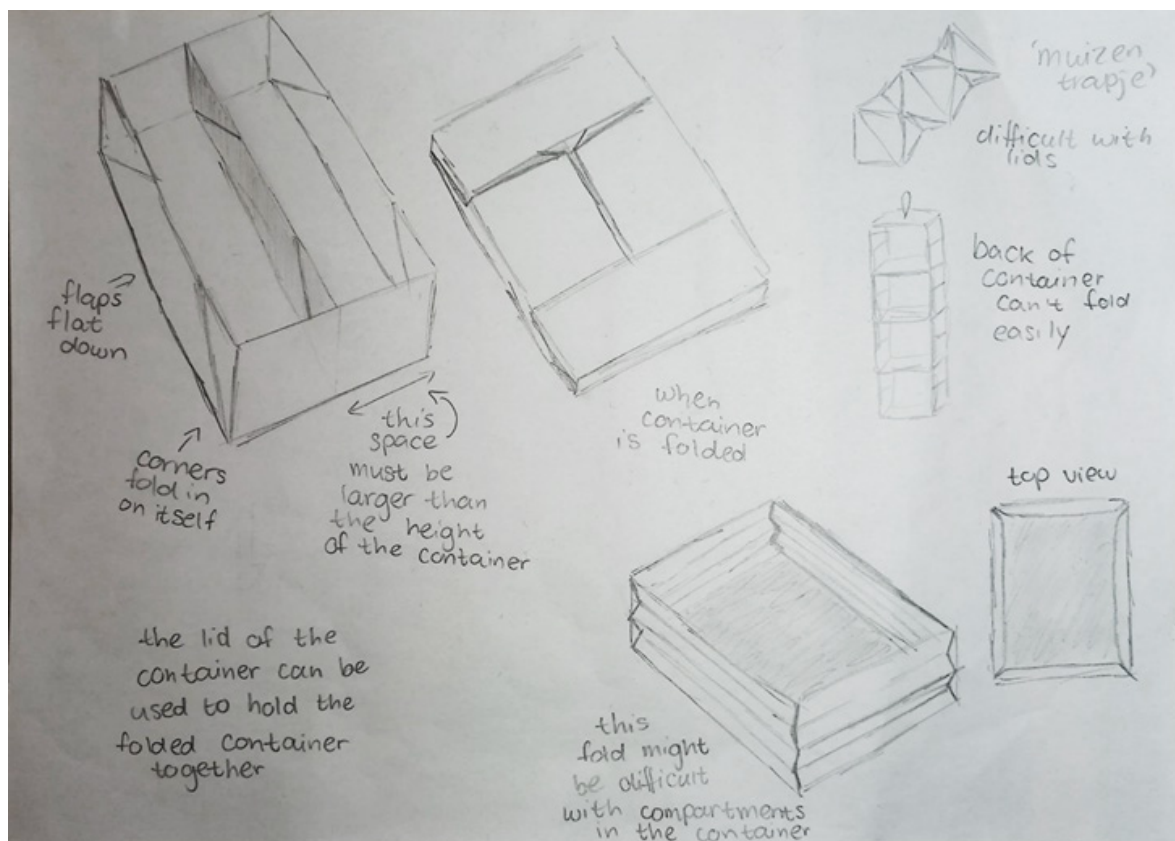 flaps
flat
down
corners
fold in
on itself
this
space
must be
larger than
the height
of the container
when
container
is folded
'muizen
trapje'
difficult with
lids
back of
container
can't fold
easily
the lid of the
container can be
used to hold the
folded container
together
this
fold might
be difficult
with compartments
in the container
top view